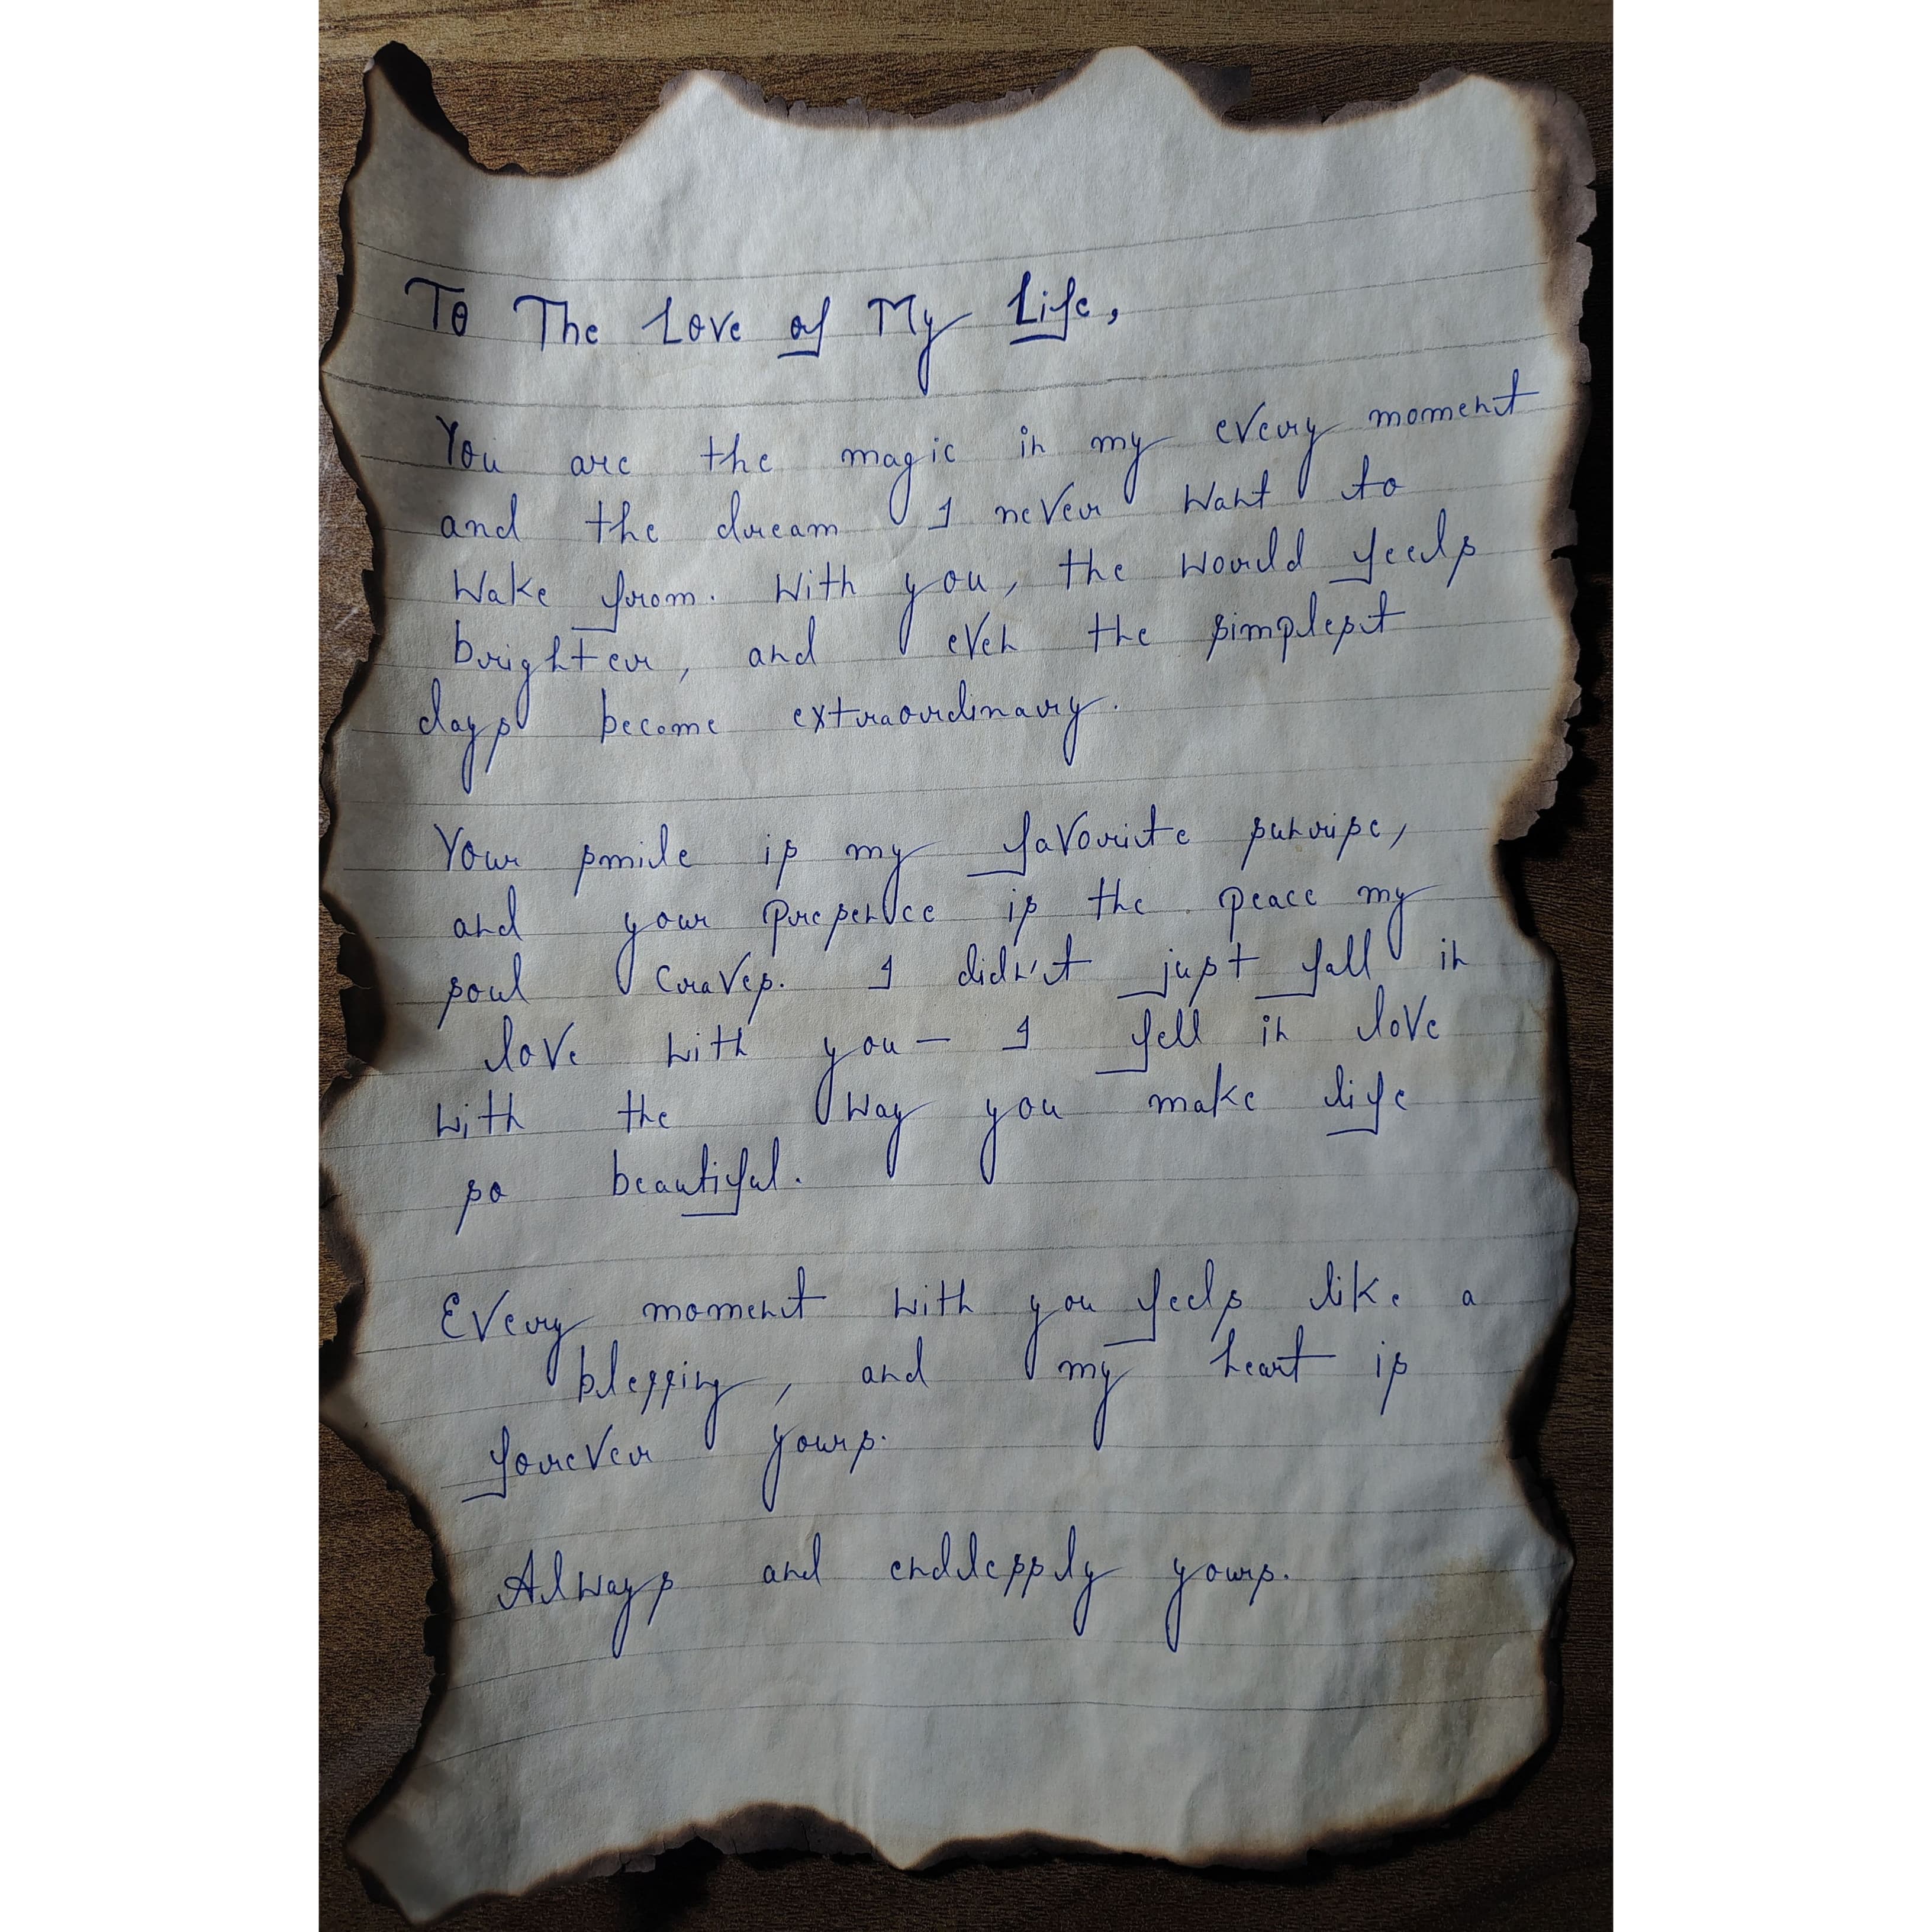 To The Love of My Life,
You are the magic in my every moment
and the dream I never want to
wake from. With you, the world feels
brighter, and even the simplest
days become extraordinary.
Your smile is my favourite sunrise,
and your presence is the peace my
soul craves. I didn't just fall in
love with you - I fell in love
with the way you make life
so beautiful.
Every moment with you feels like a
blessing, and my heart is
forever yours.
Always and endlessly yours.